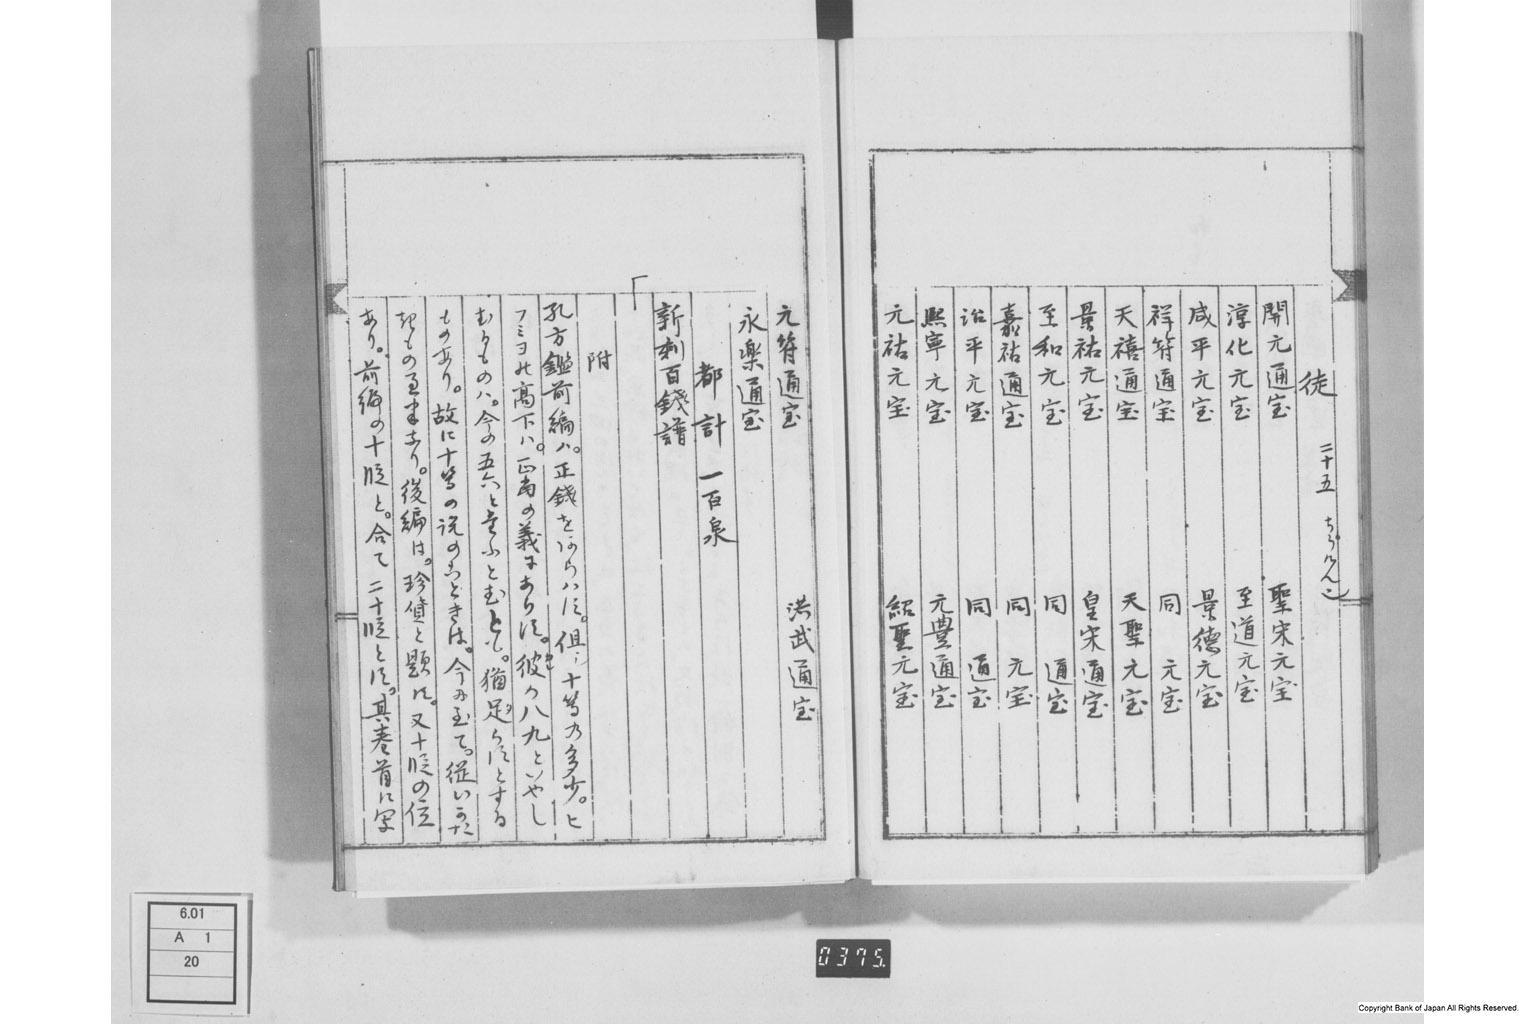 徒 二十五
開元通宝 聖宋元宝
淳化元宝 至道元宝
咸平元宝 景徳元宝
祥符通宝 同 元宝
天禧通宝 天聖元宝
景祐元宝 皇宋通宝
至和元宝 同 通宝
嘉祐通宝 同 元宝
治平元宝 同 通宝
熙寧元宝 元豊通宝
元祐元宝 紹聖元宝
元符通宝 洪武通宝
永楽通宝
都計一百泉
新刻百錢譜
附
孔方鑑前編ハ。正錢を 十等の多少。ヒ
フミヨの高下ハ。 の義にあらす。彼の八九といやし
むるものハ。今の五六と むとも。猶足らすとする
ものあり。故に十等の説のごときは。今に至て。従い
あり。後編は。珍貨と題す。又十 の位
あり。前編の十 と。合て二十 とす。其巻首に
6.01
A 1
20
0375.
Copyright Bank of Japan All Rights Reserved.